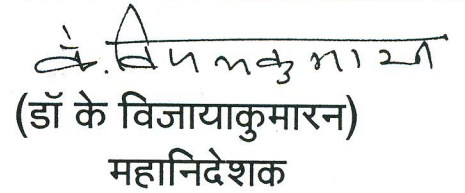 के. विजयकुमारन
(डॉ के विजायाकुमारन)
महानिदेशक